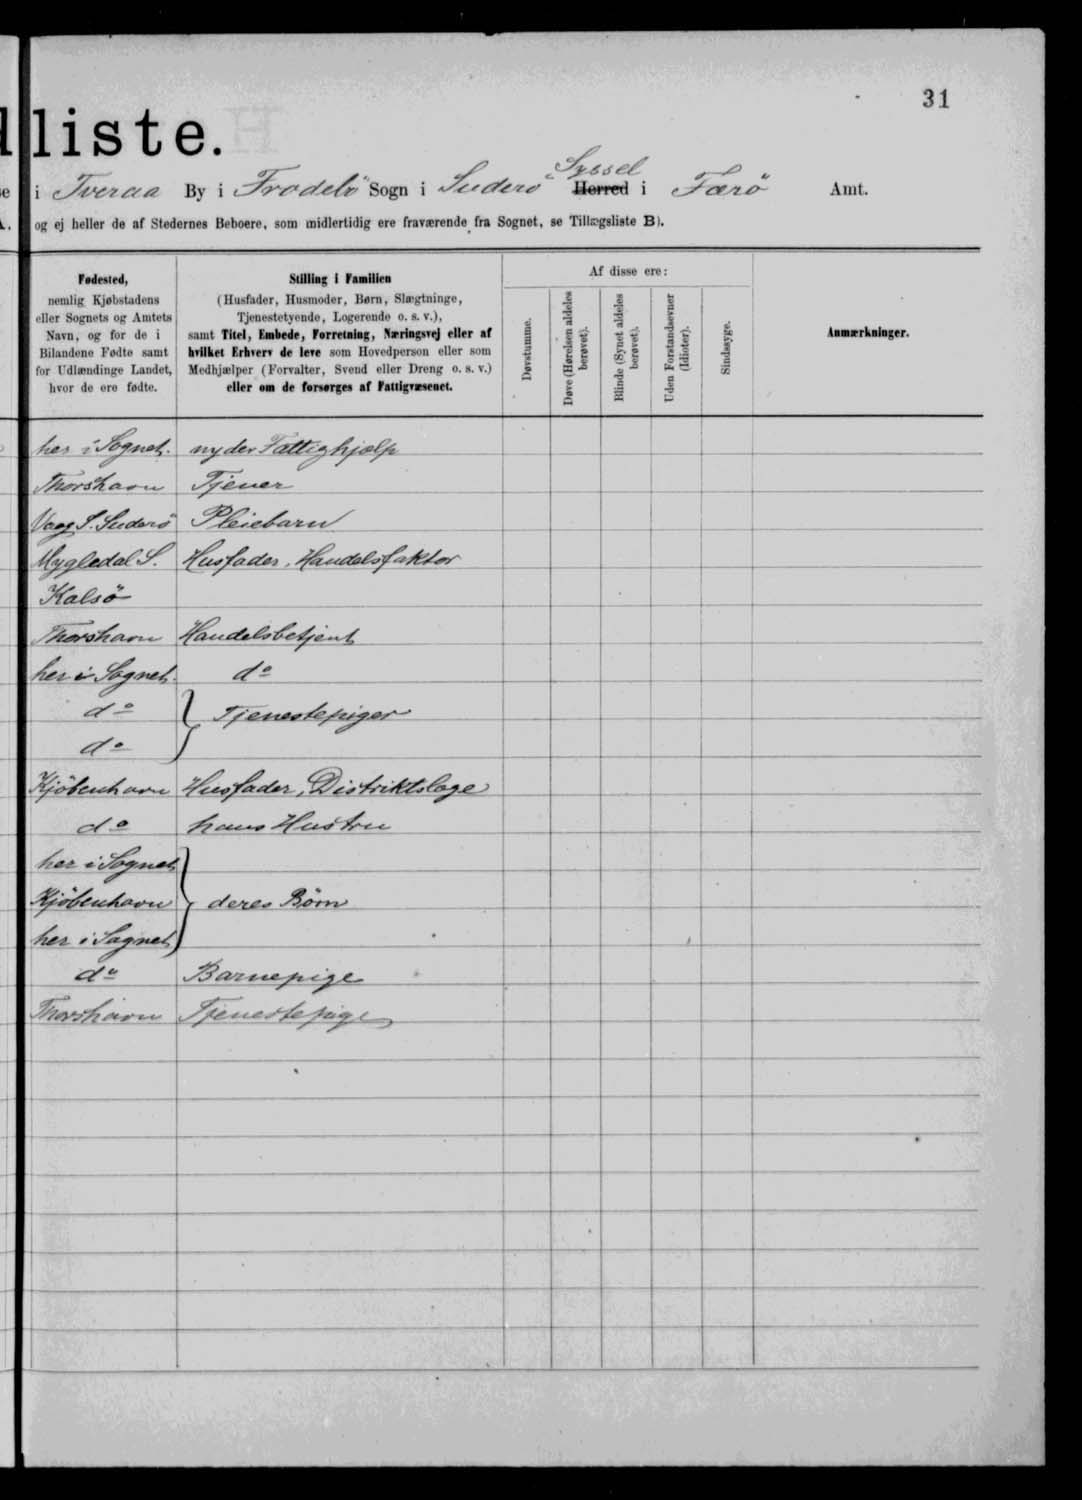 31
liste.
i Tveraa By i Frodebö Sogn i Suderö Syssel Herred i Færö Amt.
og ej heller de af Stedernes Beboere, som midlertidig ere fraværende fra Sognet, se Tillægsliste B).
Fødested,
nemlig Kjøbstadens
eller Sognets og Amtets
Navn, og for de i
Bilandene Fødte samt
for Udlændinge Landet,
hvor de ere fødte.
Stilling i Familien
(Husfader, Husmoder, Børn, Slægtninge,
Tjenestetyende, Logerende o. s. v.),
samt Titel, Embede, Forretning, Næringsvej eller af
hvilket Erhverv de leve som Hovedperson eller som
Medhjælper (Forvalter, Svend eller Dreng o. s. v.)
eller om de forsørges af Fattigvæsenet.
Af disse ere:
Døvstumme.
Døve (Hørelsen aldeles
berøvet).
Blinde (Synet aldeles
berøvet).
Uden Forstandsevner
(Idioter).
Sindssyge.
Anmærkninger.
her i Sognet. nyder Fattighjælp
Thorshavn Tjener
Vaag S. Suderö Pleiebarn
Mygledal S. Husfader, Handelsfaktor
Kalsö
Thorshavn Handelsbetjent
her i Sognet. do
do Tjenestepiger
do
Kjöbenhavn Husfader, Distriktslæge
do hans Hustru
her i Sognet
Kjöbenhavn deres Børn
her i Sognet
do Barnepige
Thorshavn Tjenestepige